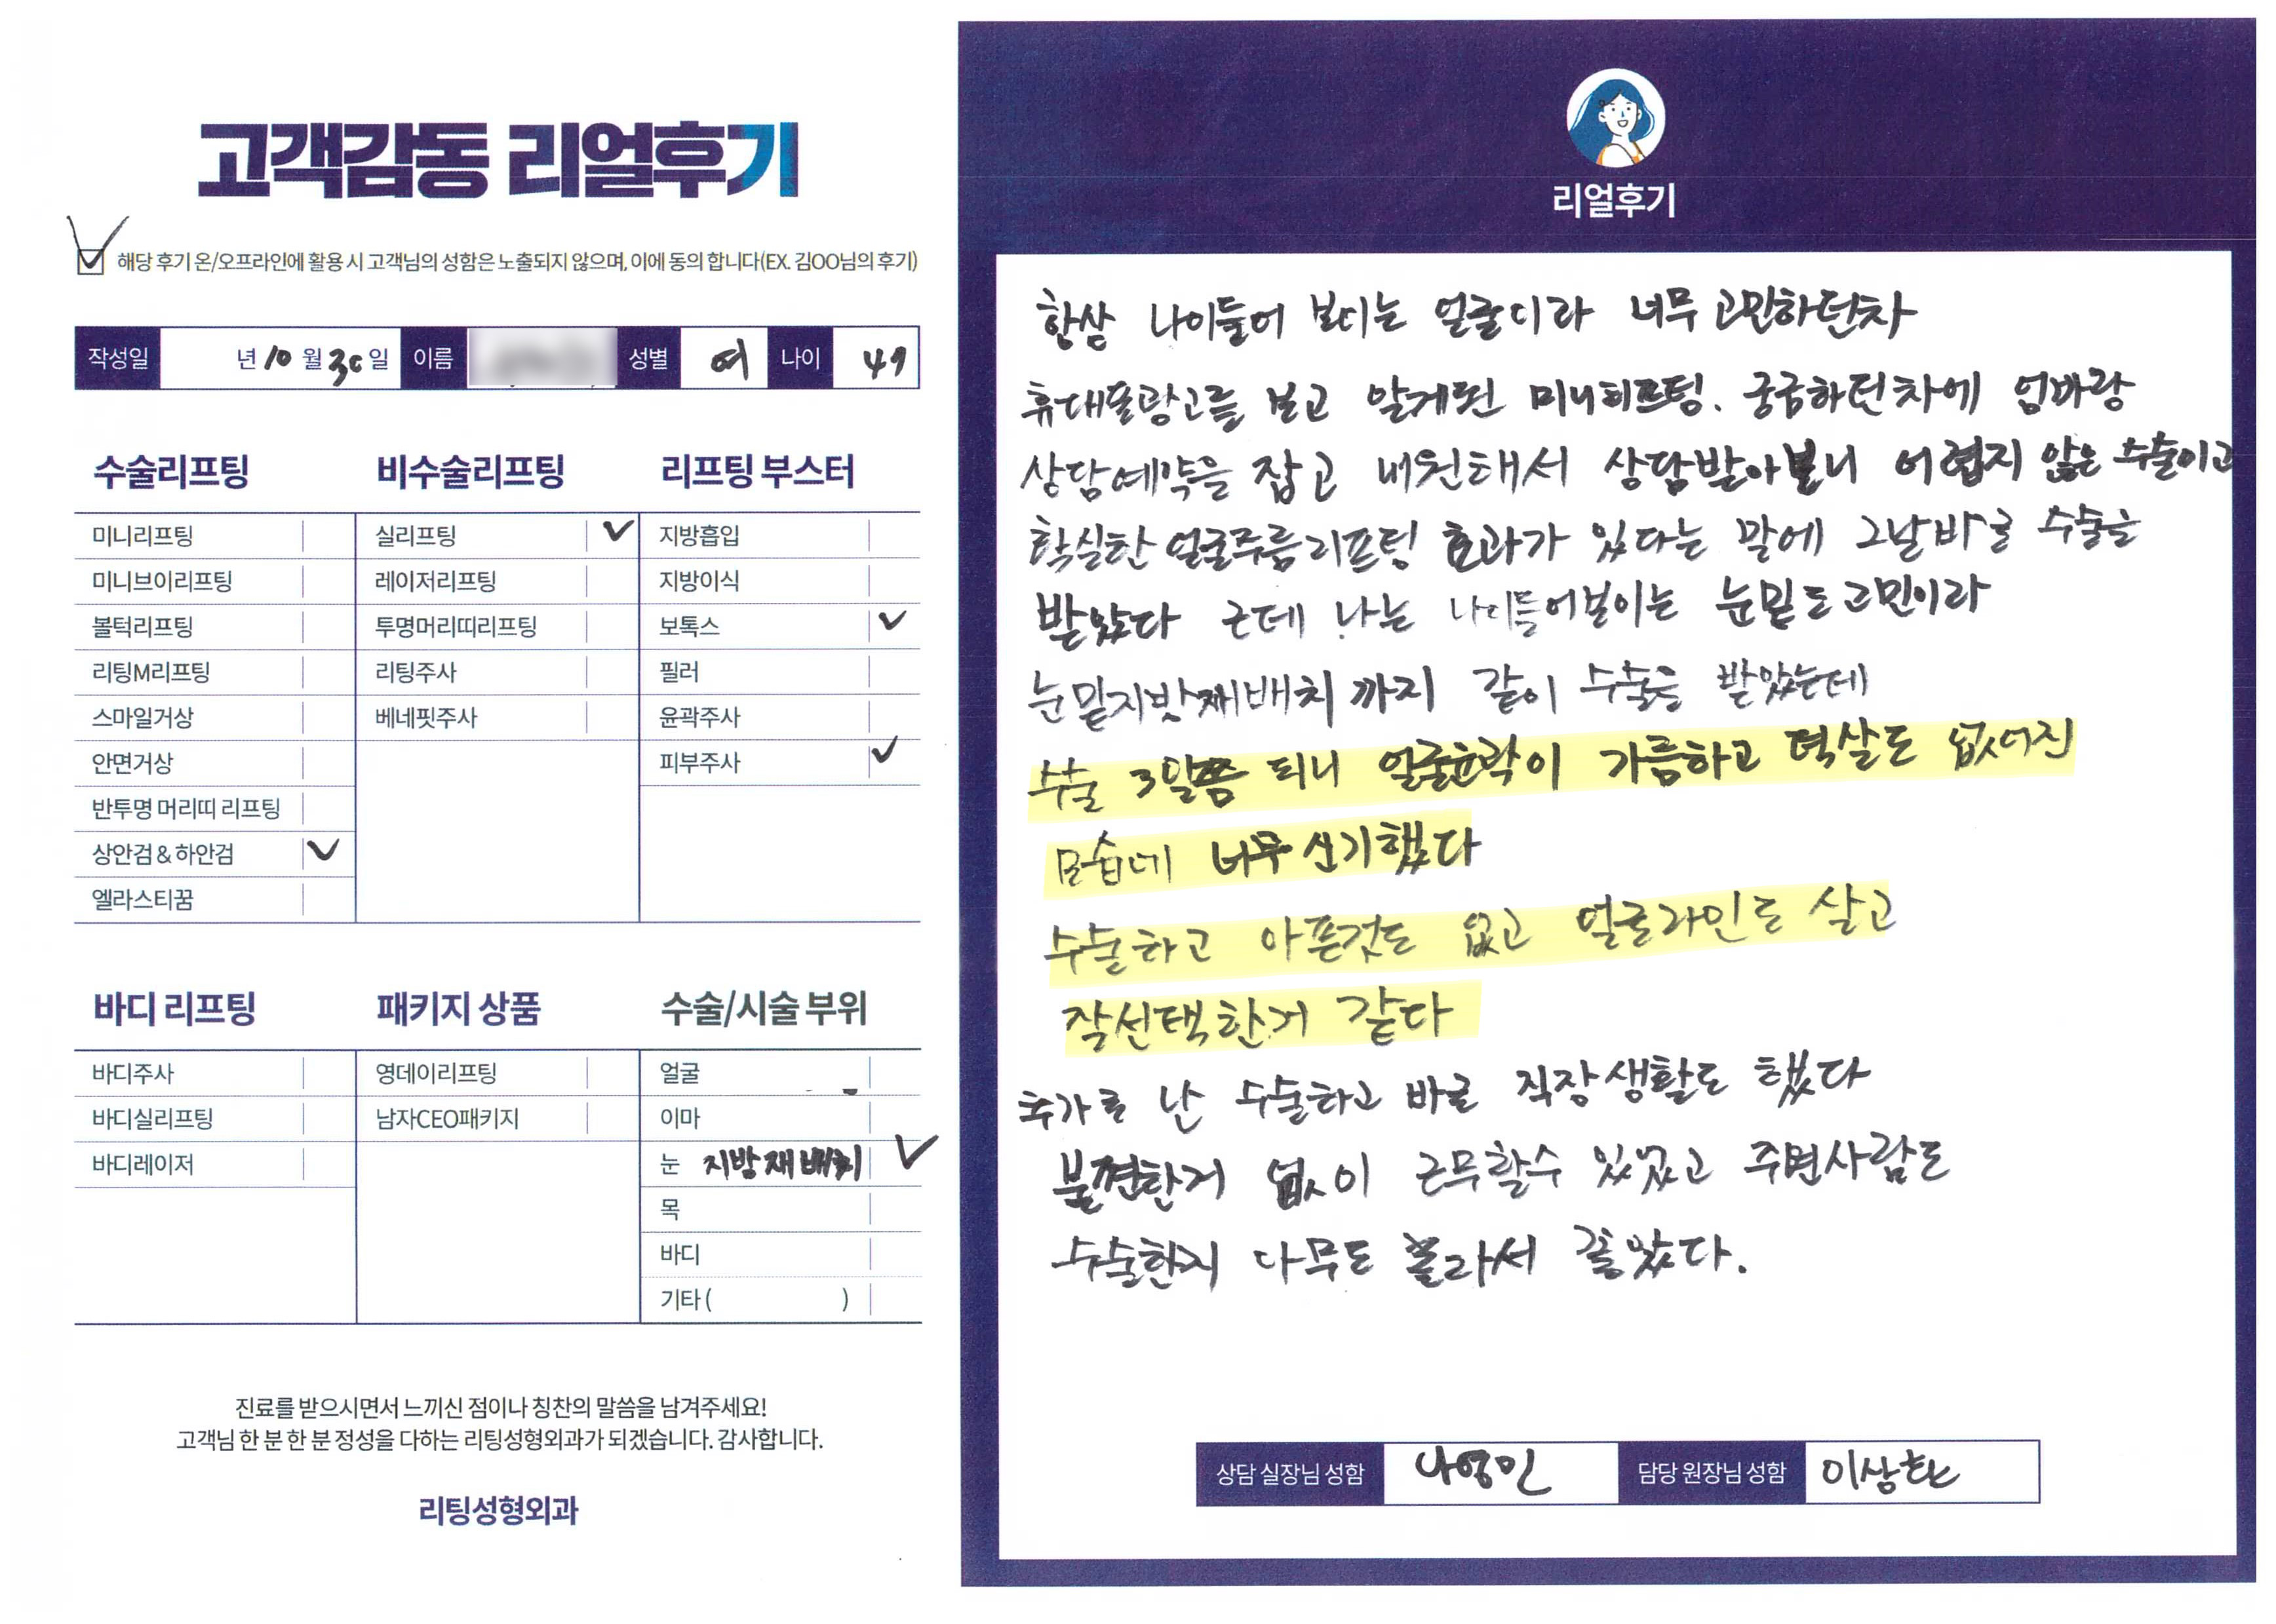 고객감동 리얼후기
해당 후기 온/오프라인에 활용 시 고객님의 성함은 노출되지 않으며, 이에 동의 합니다(EX. 김OO님의 후기)
작성일 년 10 월 30 일 이름 성별 여 나이 49
수술리프팅
미니리프팅
미니브이리프팅
볼턱리프팅
리팅M리프팅
스마일거상
안면거상
반투명 머리띠 리프팅
상안검 & 하안검 ✓
엘라스티꿈
비수술리프팅
실리프팅 ✓
레이저리프팅
투명머리띠리프팅
리팅주사
베네핏주사
리프팅 부스터
지방흡입
지방이식
보톡스 ✓
필러
윤곽주사
피부주사 ✓
바디 리프팅
바디주사
바디실리프팅
바디레이저
패키지 상품
영데이리프팅
남자CEO패키지
수술/시술 부위
얼굴
이마
눈 지방재배치 ✓
목
바디
기타 ( )
진료를 받으시면서 느끼신 점이나 칭찬의 말씀을 남겨주세요!
고객님 한 분 한 분 정성을 다하는 리팅성형외과가 되겠습니다. 감사합니다.
리팅성형외과
리얼후기
항상 나이들어 보이는 얼굴이라 너무 고민하던차
휴대폰광고를 보고 알게된 미니리프팅. 궁금하던차에 엄마랑
상담예약을 잡고 내원해서 상담받아보니 어렵지 않은 수술이고
확실한 얼굴주름리프팅 효과가 있다는 말에 그날바로 수술을
받았다 근데 나는 나이들어보이는 눈밑도 고민이라
눈밑지방재배치까지 같이 수술을 받았는데
수술 3일쯤 되니 얼굴윤곽이 갸름하고 턱살도 없어진
모습에 너무 신기했다
수술하고 아픈것도 없고 얼굴라인도 살고
잘선택한거 같다
추가로 난 수술하고 바로 직장생활도 했다
불편한거 없이 근무할수 있었고 주변사람도
수술한지 아무도 몰라서 좋았다.
상담 실장님 성함 나영민 담당 원장님 성함